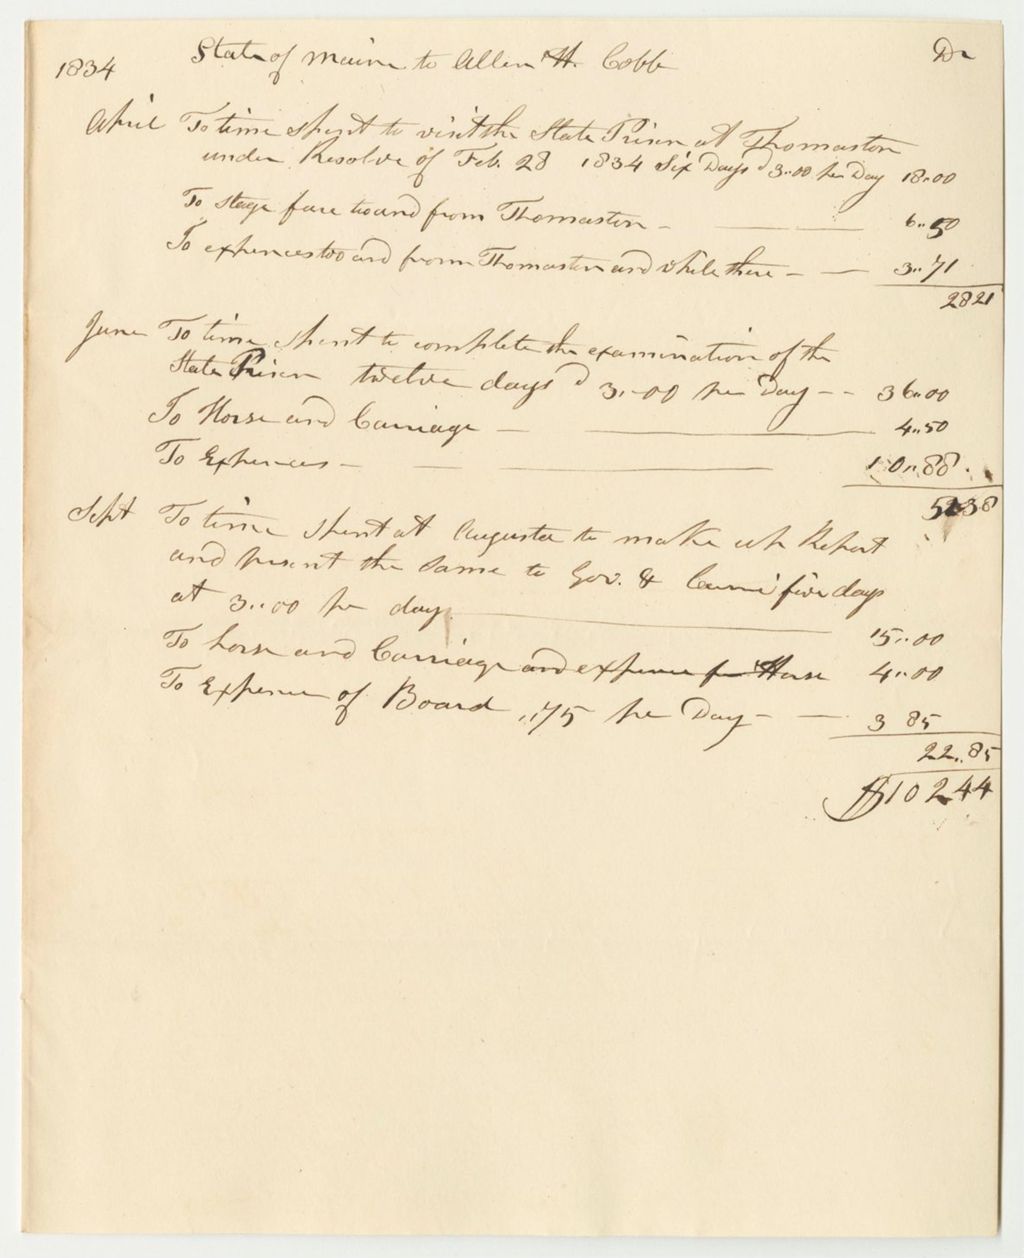 1834 State of Maine to Allen H. Cobb Dr
April To time spent to visit the State Prison at Thomaston
under Resolve of Feb. 28 1834 Six Days @ 3..00 per Day 18..00
To stage fare too and from Thomaston - 6..50
To expences too and from Thomaston and while there - - 3..71
2821
June To time spent to complete the examination of the
State Prison twelve days @ 3..00 per Day - - 36..00
To Horse and Carriage - 4..50
To Expences - 10..88
5138
Sept To time spent at Augusta to make up Report
and present the same to Gov. & five days
at 3..00 per day 15..00
To horse and Carriage and expence for Horse 4..00
To Expence of Board ,,75 per Day - - 3 85
22..85
$10244